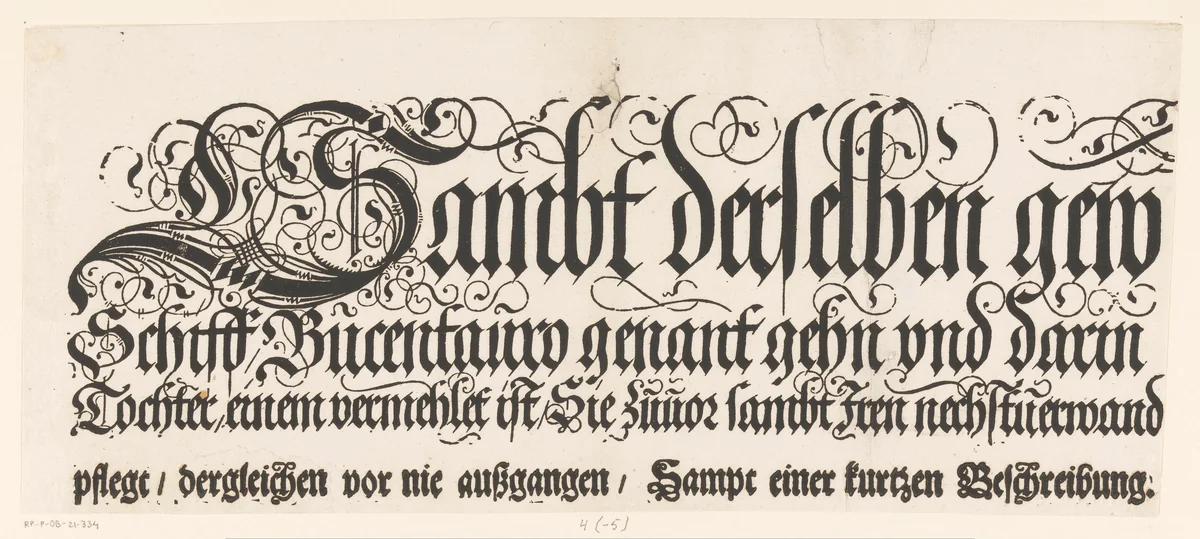 Sambt derselben gew
Schiff / Bucentauro genant gehn vnd darin
Tochter / einem vermehlet ist / Sie zuuor sambt Iren nechstuerwand
pflegt / dergleichen vor nie außgangen / Sampt einer kurtzen Beschreibung.
RP-P-OB-21-334
4 (-5)